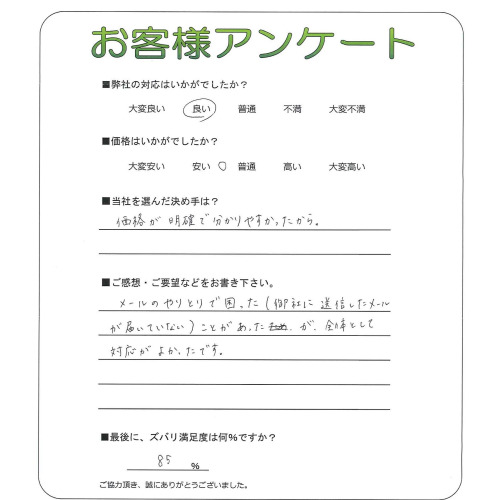 お客様アンケート
■弊社の対応はいかがでしたか？
大変良い 良い 普通 不満 大変不満
■価格はいかがでしたか？
大変安い 安い 普通 高い 大変高い
■当社を選んだ決め手は？
価格が明確で分かりやすかったから。
■ご感想・ご要望などをお書き下さい。
メールのやりとりで困った(御社に送信したメール
が届いていない)ことがあった が、全体として
対応がよかったです。
■最後に、ズバリ満足度は何%ですか？
85 %
ご協力頂き、誠にありがとうございました。